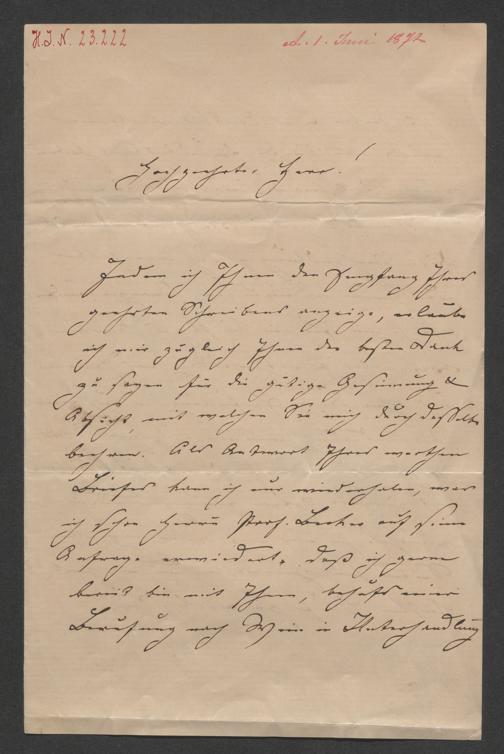 H.I.N. 23.222
d. 1. Juni 1872
Hochgeehrter Herr!
Indem ich Ihnen den Empfang Ihres
geehrten Schreibens anzeige, erlaube
ich mir zugleich Ihnen den besten Dank
zu sagen für die gütige Gesinnung &
Absicht, mit welchen Sie mich durch dasselbe
beehren. Als Antwort Ihres werthen
Briefes kann ich nur wiederholen, was
ich schon Herrn Prof. Becker auf seine
Anfrage erwiedert, daß ich gerne
bereit bin mit Ihnen, behufs einer
Berufung nach Wien in Unterhandlung